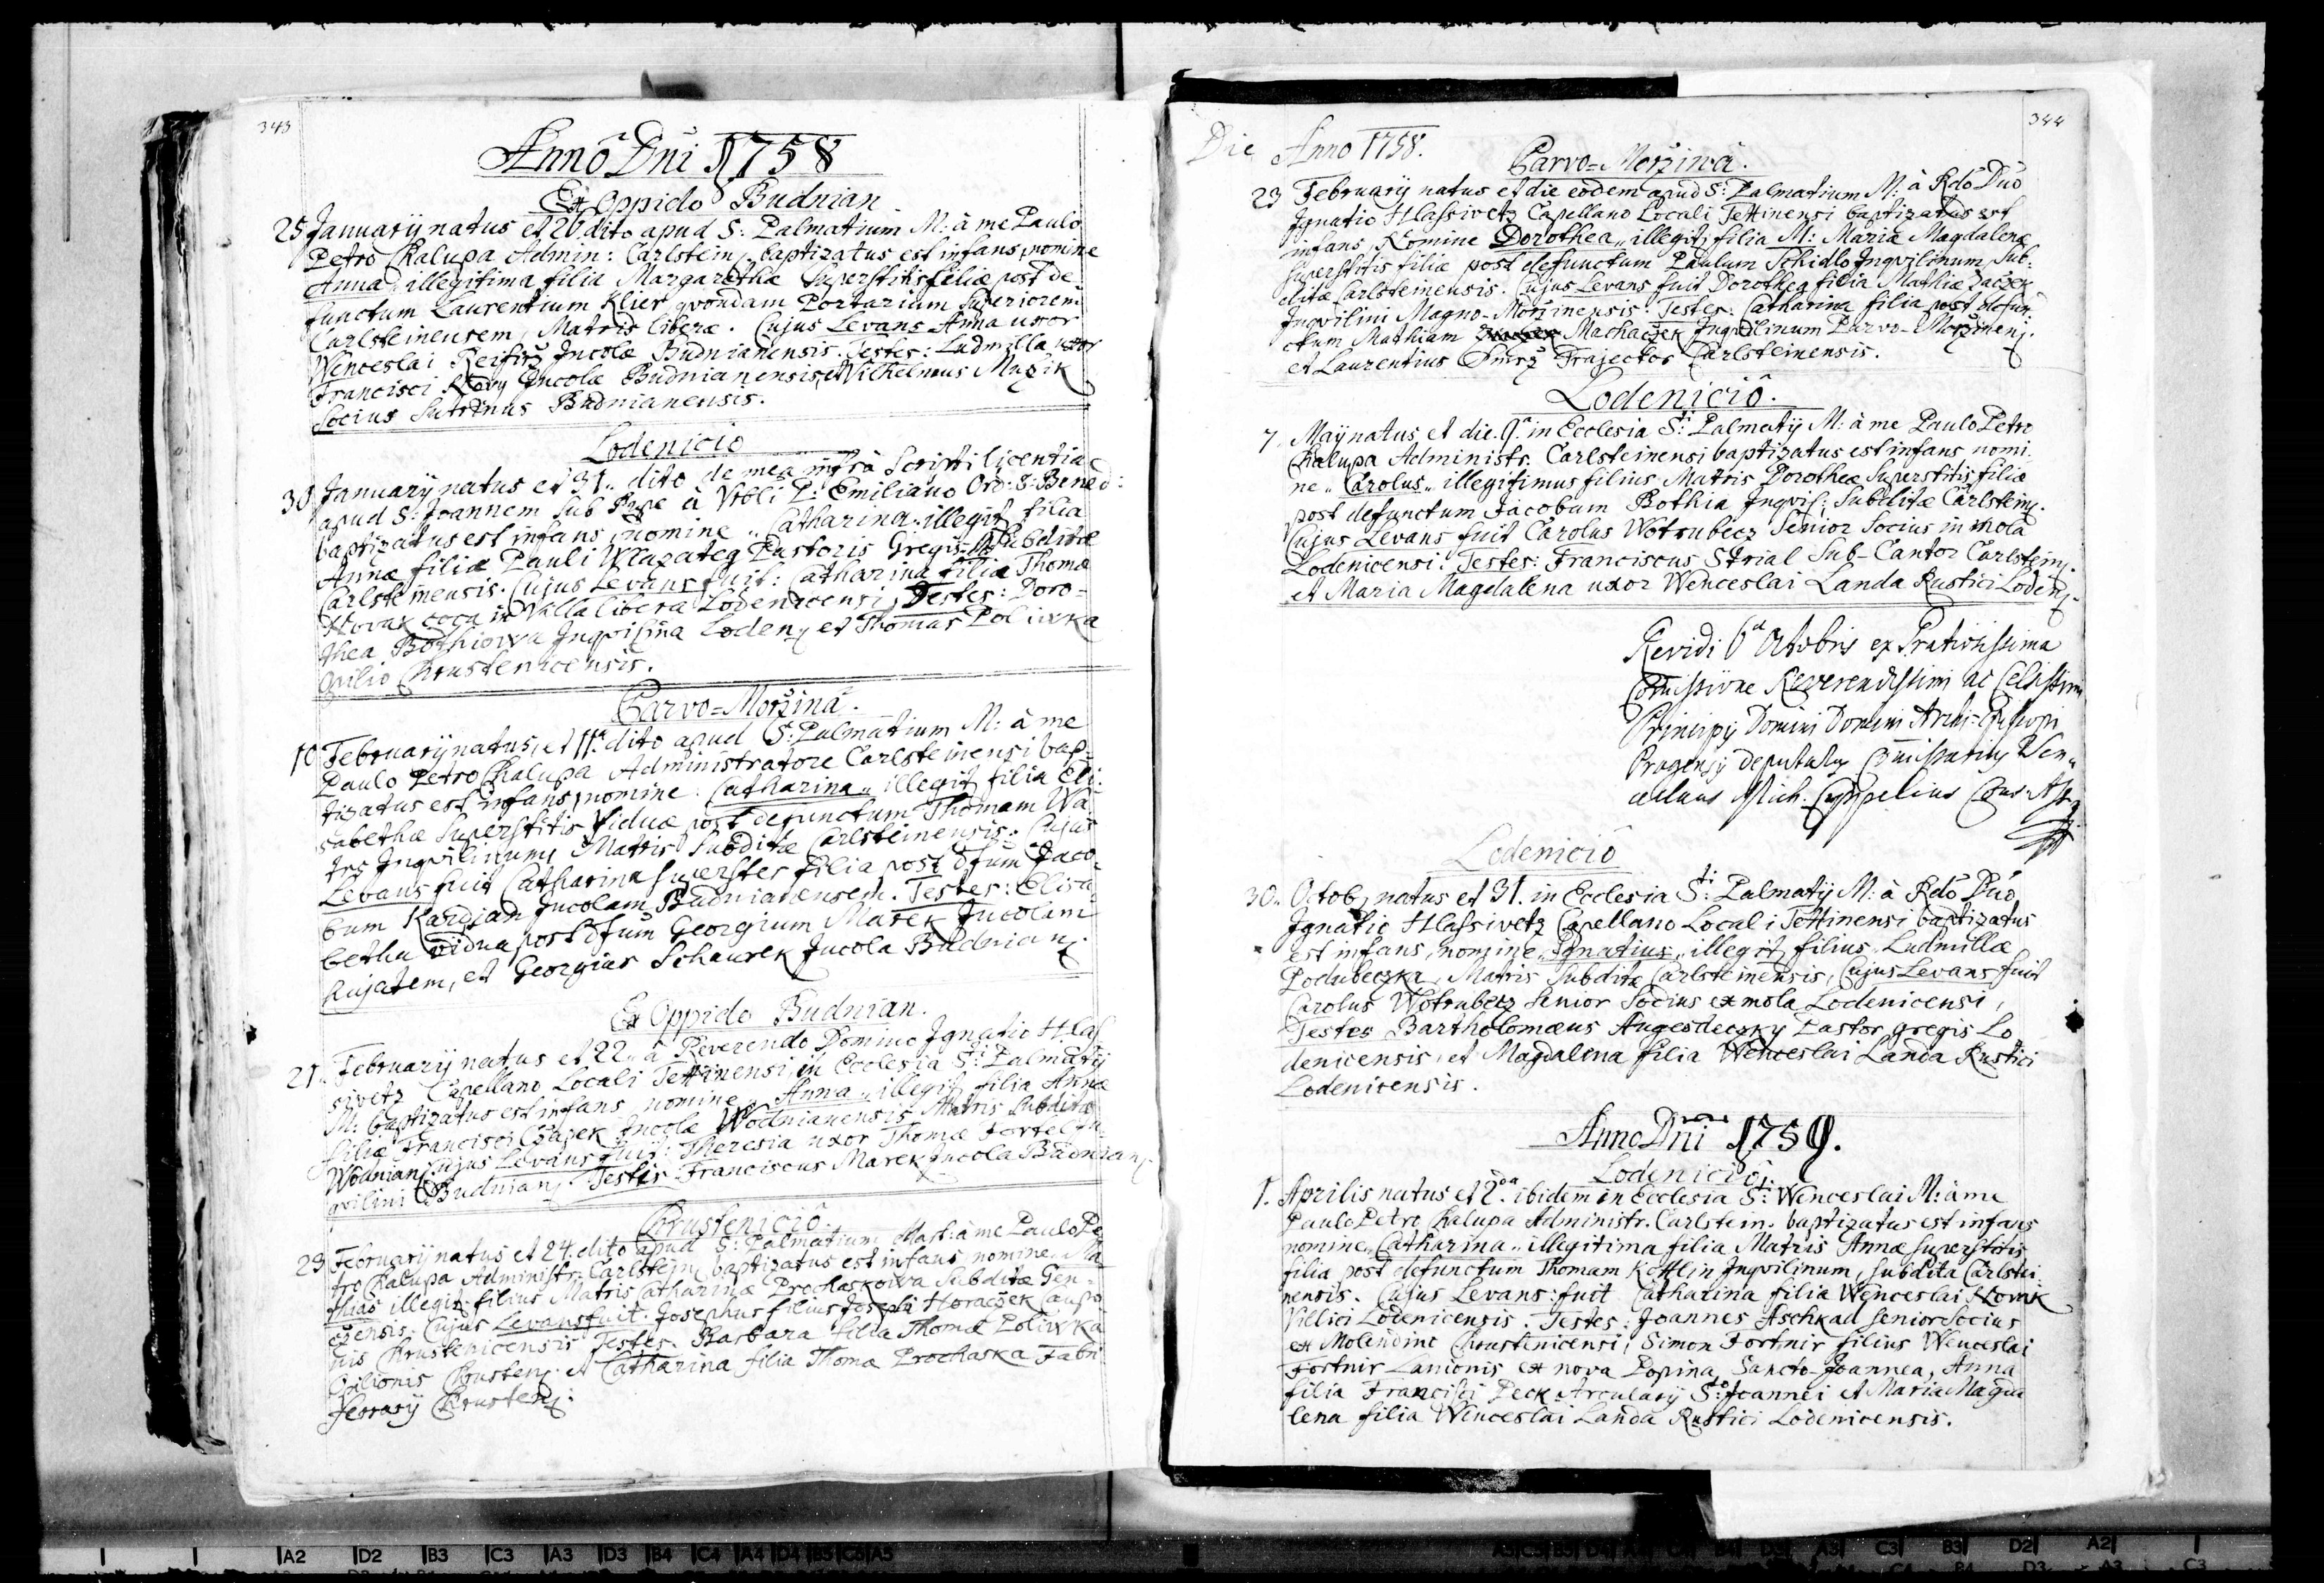 343
Anno Dñi 1758
Ex Oppido Budnian
25 Januarij natus et 26 dito apud S: Palmatium M: à me Paulo
Petro Chalupa Admin: Carlstein; baptizatus est infans, nomine
Anna illegitima filia Margarethæ Superstitis filiæ post de-
functum Laurentium Klier qvondam Portarium Superiorem
Carlsteinensem, Matris liberæ. Cujus Levans Anna uxor
Wenceslai Incolæ Budnianensis. Testes: Ludmilla uxor
Francisci Incolæ Budnianensis, et Vilhelmus Muzik
Socius Sutrinus Budnianensis.
Lodenicio
30 Januarij natus et 31. dito de mea infra Scripti licentia
apud S: Joannem Sub Rupe à Vbli P: Emiliano Ord: S: Bened:
baptizatus est infans, nomine Catharina illegit; filia
Annæ filiæ Pauli Pastoris Gregis M: Subditæ
Carlsteinensis. Cujus Levans fuit: Catharina filia Thomæ
Novak coca in Villa libera Lodenicensi, Testes: Doro-
thea Bothiowa Inqvilina Loden; et Thomas Poliwka
Opilio Chrustenicensis.
Parvo-Moržina.
10 Februarij natus, et 11. dito apud S: Palmatium M: à me
Paulo Petro Chalupa Administratore Carlsteinensi bap-
tizatus est infans, nomine Catharina illegit; filia Eli-
sabethæ Superstitis Viduæ post defunctum Thomam Wa-
Inqvilinum, Matris Subditæ Carlsteinensis. Cujus
Levans fuit Catharina superstes filia post dfum Jaco-
bum Incolam Budnianensem. Testes: Elisa-
betha vidua post dfum Georgium Marek Incolam
Cujatem, et Georgius Schaurek Incola Budnian;
Ex Oppido Budnian.
21. Februarij natus et 22. à Reverendo Domino Ignatio Hlas-
sivetz Capellano Locali Tettinensi, in Ecclesia S:ti Palmatij
M: baptizatus est infans nomine Anna illegit; filia Annæ
filiæ Francisci Czapek Incolæ Wodnianensis Matris Subditæ
Wodnian; Cujus Levans fuit: Theresia uxor Thomæ In-
qvilini Budnian; Testis Franciscus Marek Incola Budnian;
Chrustenicio
23 Februarij natus et 24. dito apud S: Palmatium Mart: à me Paulo Pe-
tro Chalupa Administr: Carlstein; baptizatus est infans nomine Ma-
thias illegit; filius Matris Catharinæ Prochaskowa Subditæ Gen-
ensis. Cujus Levans fuit. Josephus filius Josephi Horaczek Caupo-
nis Chrustenicensis Testes. Barbara filia Thomæ Poliwka
Opilionis Chrusten; et Catharina filia Thomæ Prochaska Fabri
ferrarij Chrusten;
344
Die Anno 1758.
Parvo-Moržina.
23 Februarij natus et die eodem apud S: Palmatium M: à Rdo Dno
Ignatio Hlassivetz Capellano Locali Tettinensi baptizatus est
infans, Nomine Dorothea illegit; filia M: Mariæ Magdalenæ
Superstitis filiæ post defunctum Paulum Schidlo Inqvilinum, Sub-
ditæ Carlsteinensis. Cujus Levans fuit Dorothea filia Mathiæ Žaczek
Inqvilini Magno-Moržinensis. Testes: Catharina filia post defun-
ctum Mathiam Machaczek Inqvilinum Parvo-Moržinen;
et Laurentius Smrz Trajector Carlsteinensis.
Lodenicio.
7. Maij natus, et die 9. in Ecclesia S:ti Palmatij M: à me Paulo Petro
Chalupa Administr. Carlsteinensi baptizatus est infans nomi-
ne Carolus illegitimus filius Matris Dorotheæ Superstitis filiæ
post defunctum Jacobum Bothia Inqvil; Subditæ Carlstein;
Cujus Levans fuit Carolus Wotrubecz Senior Socius in mola
Lodenicensi. Testes: Franciscus Strial Sub-Cantor Carlstein;
et Maria Magdalena uxor Wenceslai Landa Rustici Loden;
Revidi 6ta Octobris ex Gratiosissima
Commissione Reverendissimi ac Celsissimi
Principis Domini Domini Archi-Episcopi
Pragensis deputatus Commissarius Wen-
ceslaus Mich.
Lodenicio
30. Octob; natus et 31. in Ecclesia S:ti Palmatij M: à Rdo Dno
Ignatio Hlassivetz Capellano Locali Tettinensi baptizatus
est infans, nomine Ignatius illegit; filius Ludmillæ
Podubeczka, Matris Subditæ Carlsteinensis, Cujus Levans fuit
Carolus Wotrubetz senior Socius ex mola Lodenicensi,
Testes Bartholomæus Augesdeczky Pastor gregis Lo-
denicensis, et Magdalena filia Wenceslai Landa Rustici
Lodenicensis.
Anno Dñi 1759.
Lodenicio.
1. Aprilis natus et 2da ibidem in Ecclesia S:ti Wenceslai M: à me
Paulo Petro Chalupa Administr. Carlstein. baptizatus est infans
nomine Catharina illegitima filia Matris Annæ superstitis
filia post defunctum Thomam Kottlin Inqvilinum, subdita Carlstei-
nensis. Cujus Levans: fuit Catharina filia Wenceslai Novak
Villici Lodenicensis. Testes: Joannes Aschkad Senior Socius
ex Molendino Chrustenicensi, Simon Fortnir filius Wenceslai
Fortnir Lanionis ex nova Popina, Sancto-Joannea, Anna
filia Francisci Peck Arcularij S: Joannei et Maria Magda-
lena filia Wenceslai Landa Rustici Lodenicensis.